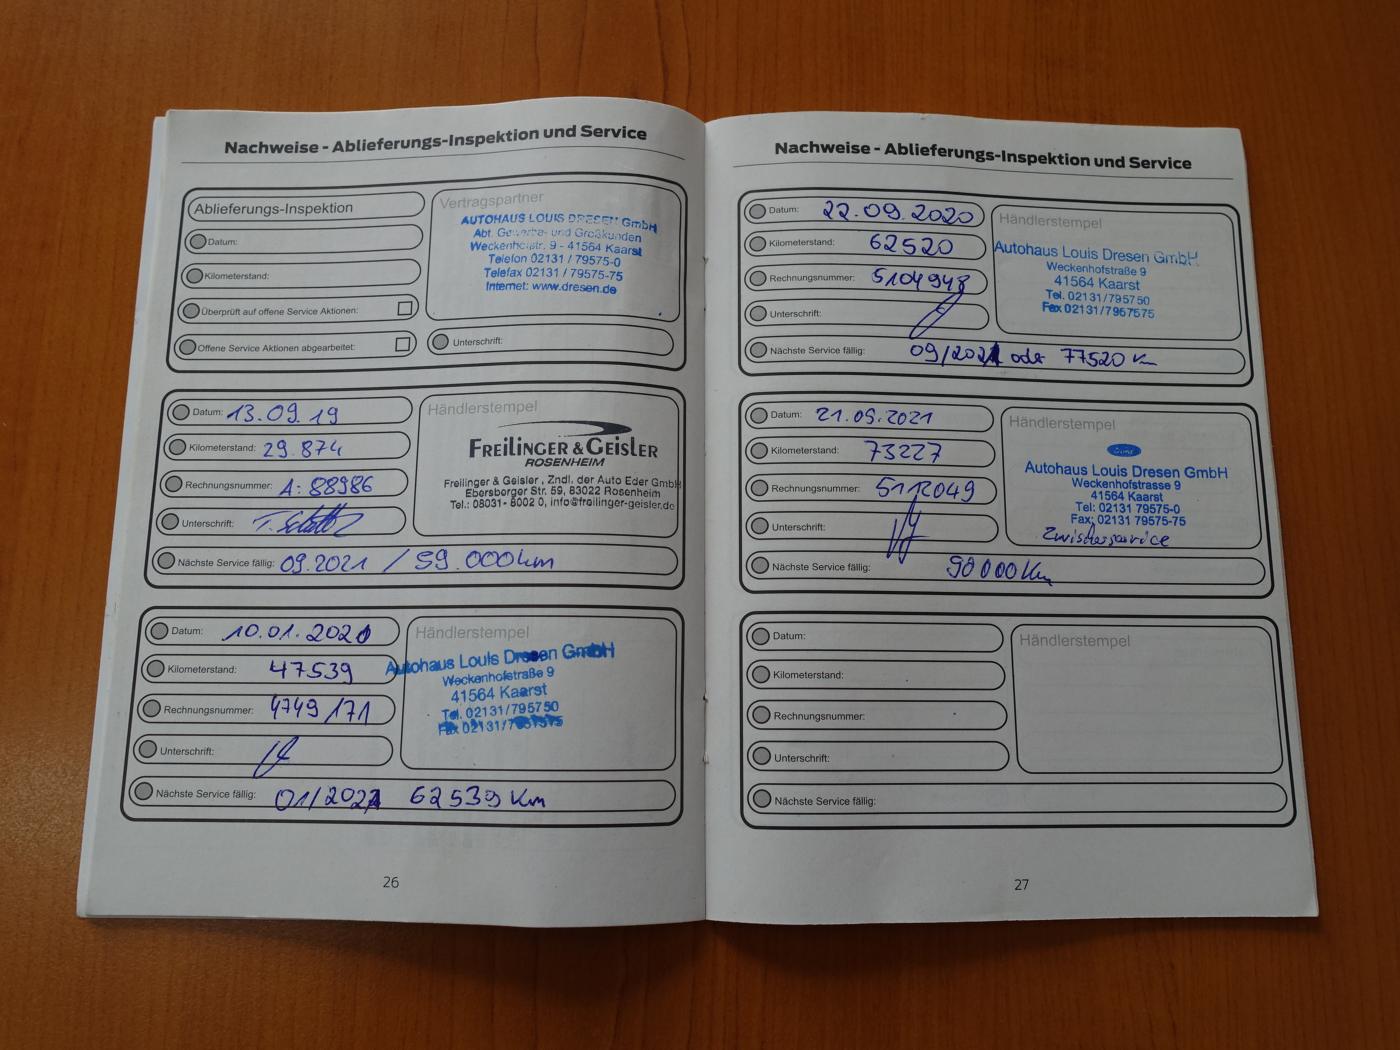 Nachweise - Ablieferungs-Inspektion und Service
Ablieferungs-Inspektion
Datum:
Kilometerstand:
Überprüft auf offene Service Aktionen:
Offene Service Aktionen abgearbeitet:
Vertragspartner
AUTOHAUS LOUIS DRESEN GmbH
Abt. Gewerbe- und Großkunden
Weckenhofstr. 9 - 41564 Kaarst
Telefon 02131 / 79575-0
Telefax 02131 / 79575-75
Internet: www.dresen.de
Unterschrift:
Datum: 13.09.19
Kilometerstand: 29.874
Rechnungsnummer: A: 88986
Unterschrift:
Händlerstempel
FREILINGER & GEISLER
ROSENHEIM
Freilinger & Geisler, Zndl. der Auto Eder GmbH
Ebersberger Str. 59, 83022 Rosenheim
Tel.: 08031- 8002 0, info@freilinger-geisler.de
Nächste Service fällig: 09.2021 / 59.000km
Datum: 10.01.2020
Kilometerstand: 47539
Rechnungsnummer: 4749 / 171
Unterschrift:
Händlerstempel
Autohaus Louis Dresen GmbH
Weckenhofstraße 9
41564 Kaarst
Tel. 02131/795750
Fax 02131/7957575
Nächste Service fällig: 01/2021 62539 Km
26
Nachweise - Ablieferungs-Inspektion und Service
Datum: 22.09.2020
Kilometerstand: 62520
Rechnungsnummer: 5104948
Unterschrift:
Händlerstempel
Autohaus Louis Dresen GmbH
Weckenhofstraße 9
41564 Kaarst
Tel. 02131/795750
Fax 02131/7957575
Nächste Service fällig: 09/2021 oder 77520 Km
Datum: 21.09.2021
Kilometerstand: 73227
Rechnungsnummer: 5112049
Unterschrift:
Händlerstempel
Ford
Autohaus Louis Dresen GmbH
Weckenhofstrasse 9
41564 Kaarst
Tel: 02131 79575-0
Fax: 02131 79575-75
Zwischenservice
Nächste Service fällig: 90000 Km
Datum:
Kilometerstand:
Rechnungsnummer:
Unterschrift:
Händlerstempel
Nächste Service fällig:
27